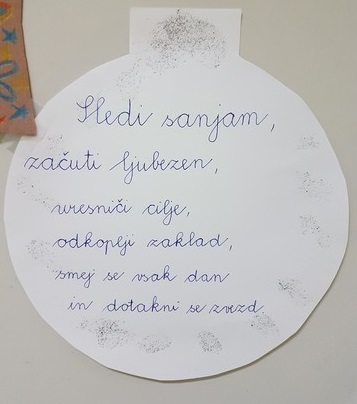 Sledi sanjam,
začuti ljubezen,
uresniči cilje,
odkoplji zaklad,
smej se vsak dan
in dotakni se zvezd.